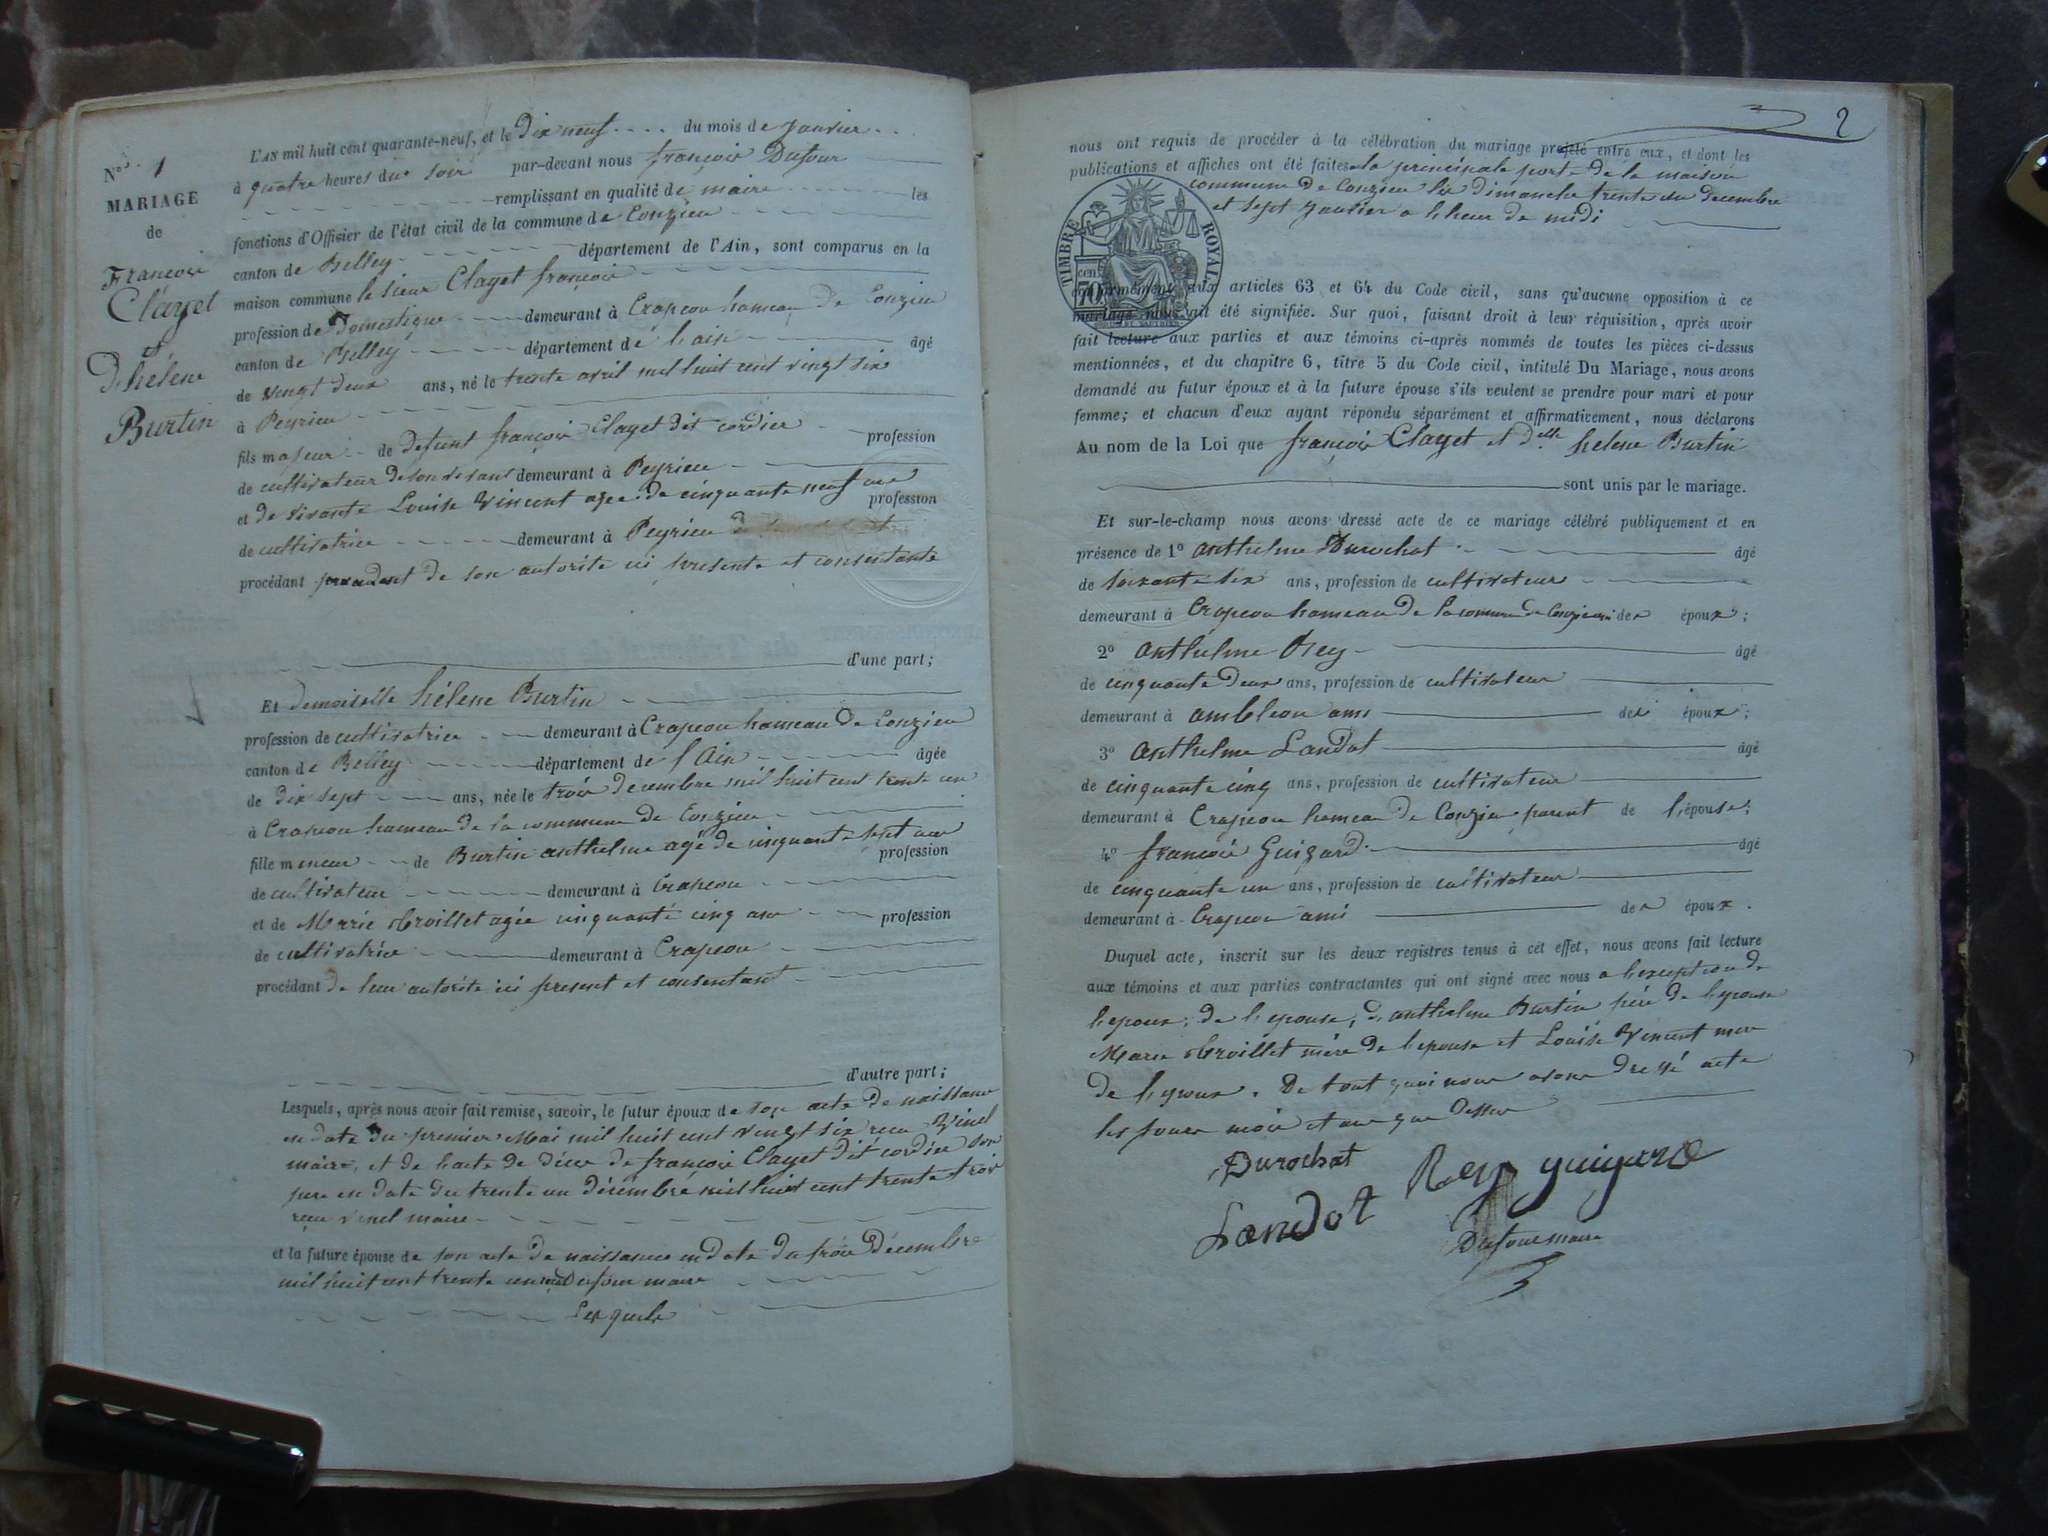 Nos. 1
MARIAGE
de
François
Clayet
et
D'hélène
Burtin
L'AN mil huit cent quarante-neuf, et le Dix neuf .... du mois de Janvier ..
à quatre heures du soir par-devant nous françois Dufour
remplissant en qualité de maire les
fonctions d'Officier de l'état civil de la commune de Conzieu
canton de Belley département de l'Ain, sont comparus en la
maison commune le sieur Clayet françois
profession de Domestique demeurant à Crapeou hameau de Conzieu
canton de Belley département de l'ain âgé
de vingt deux ans, né le trente avril mil huit cent vingt six
à Peyrieu
fils majeur de defunt françois Clayet dit cordier profession
de cultivateur de son vivant demeurant à Peyrieu
et de vivante Louise Vincent agée de cinquante neuf ans profession
de cultivatrice demeurant à Peyrieu
procédant procedant de son autorité ici presente et consentante
d'une part;
Et demoiselle hélène Burtin
profession de cultivatrice demeurant à Crapeou hameau de Conzieu
canton de Belley département de l'Ain âgée
de dix sept ans, née le trois decembre mil huit cent trente un
à Crapeou hameau de la commune de Conzieu
fille mineur de Burtin anthelme agé de cinquante sept ans profession
de cultivateur demeurant à Crapeou
et de Marie Troillet agée cinquante cinq ans profession
de cultivatrice demeurant à Crapeou
procédant de leur autorité ici present et consentant
d'autre part;
Lesquels, après nous avoir fait remise, savoir, le futur époux de son acte de naissance
en date du premier Mai mil huit cent vingt six recu Vinel
maire, et de l'acte de décès de françois Clayet dit cordier son
pere en date du trente un décembre mil huit cent trente trois
recu vinel maire
et la future épouse de son acte de naissance en date du trois Décembre
mil huit cent trente un Dufour maire
Lesquels
2
nous ont requis de procéder à la célébration du mariage projeté entre eux, et dont les
publications et affiches ont été faites a la principale porte de la maison
commune de Conzieu les dimanche trente un decembre
et sept Janvier a l'heure de midi
TIMBRE ROYAL
cen 70
conformément aux articles 63 et 64 du Code civil, sans qu'aucune opposition à ce
mariage nous ait été signifiée. Sur quoi, faisant droit à leur réquisition, après avoir
fait lecture aux parties et aux témoins ci-après nommés de toutes les pièces ci-dessus
mentionnées, et du chapitre 6, titre 5 du Code civil, intitulé Du Mariage, nous avons
demandé au futur époux et à la future épouse s'ils veulent se prendre pour mari et pour
femme; et chacun d'eux ayant répondu séparément et affirmativement, nous déclarons
Au nom de la Loi que françois Clayet et delle hélene Burtin
sont unis par le mariage.
Et sur-le-champ nous avons dressé acte de ce mariage célébré publiquement et en
présence de 1º anthelme Durochat âgé
de soixante six ans, profession de cultivateur
demeurant à Crapeou hameau de la commune de Conzieu ami des époux;
2º anthelme Rey âgé
de cinquante deux ans, profession de cultivateur
demeurant à ambléon ami des époux;
3º anthelme Landot âgé
de cinquante cinq ans, profession de cultivateur
demeurant à Crapeou hameau de Conzieu parent de l'épouse;
4º françois Guigard âgé
de cinquante un ans, profession de cultivateur
demeurant à Crapeou ami des époux.
Duquel acte, inscrit sur les deux registres tenus à cet effet, nous avons fait lecture
aux témoins et aux parties contractantes qui ont signé avec nous a l'exception de
l'epoux, de l'epouse, d'anthelme Burtin père de l'epouse
Marie Troillet mère de l'epouse et Louise Vincent mere
de l'epoux. De tout quoi nous avons dressé acte
les jour mois et an que dessus
Durochat
Rey guigard
Landot
Dufour maire